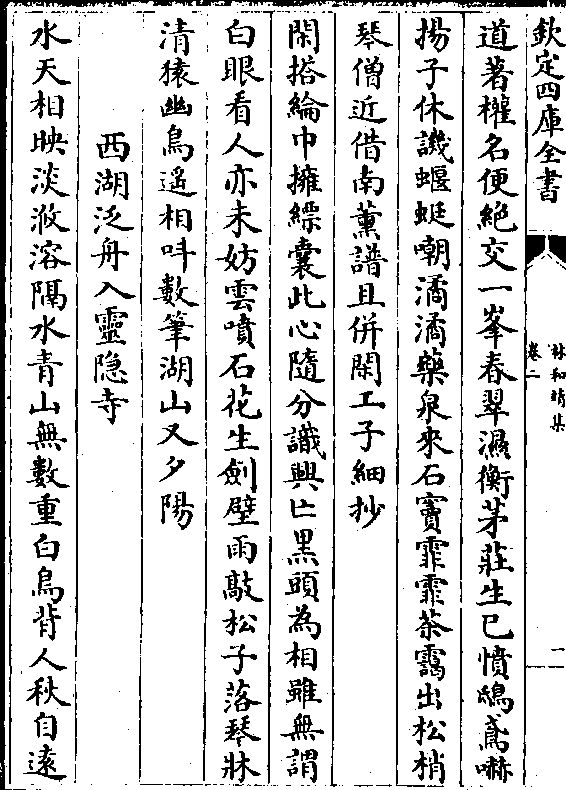 欽定四庫全書
林和靖集
卷二
一
道著權名便絶交一峯春翠濕衡茅莊生已憤鴟鳶嚇
揚子休譏蝘蜓嘲潏潏藥泉來石竇霏霏茶靄出松梢
琴僧近借南薰譜且併閑工子細抄
閑搭綸巾擁縹囊此心隨分識興亡黒頭為相雖無謂
白眼看人亦未妨雲噴石花生劍壁雨敲松子落琴牀
清猿幽鳥遥相叫數筆湖山又夕陽
西湖泛舟入靈隠寺
水天相映淡㴒溶隔水青山無數重白鳥背人秋自遠